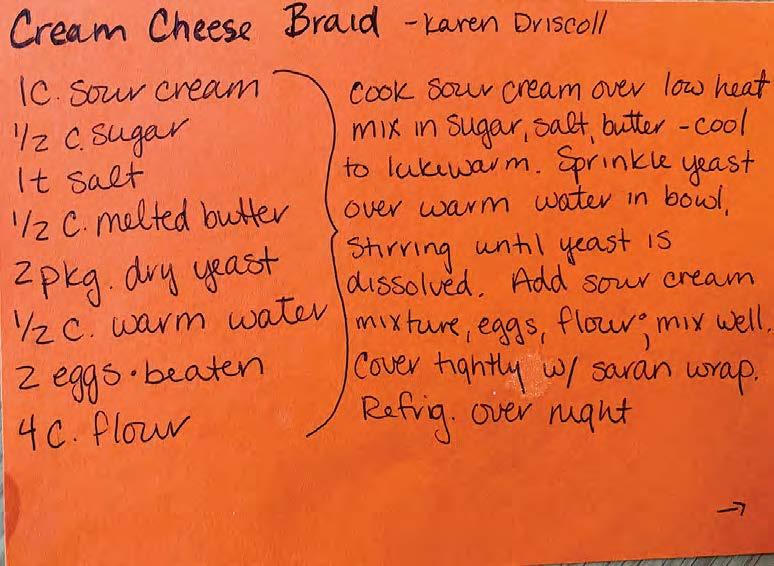 Cream Cheese Braid - Karen Driscoll
1C. sour cream
1/2 c. sugar
1t salt
1/2 c. melted butter
2 pkg. dry yeast
1/2 c. warm water
2 eggs • beaten
4 c. flour
Cook sour cream over low heat
mix in sugar, salt, butter - cool
to lukewarm. Sprinkle yeast
over warm water in bowl,
stirring until yeast is
dissolved. Add sour cream
mixture, eggs, flour; mix well.
Cover tightly w/ saran wrap.
Refrig. over night
→